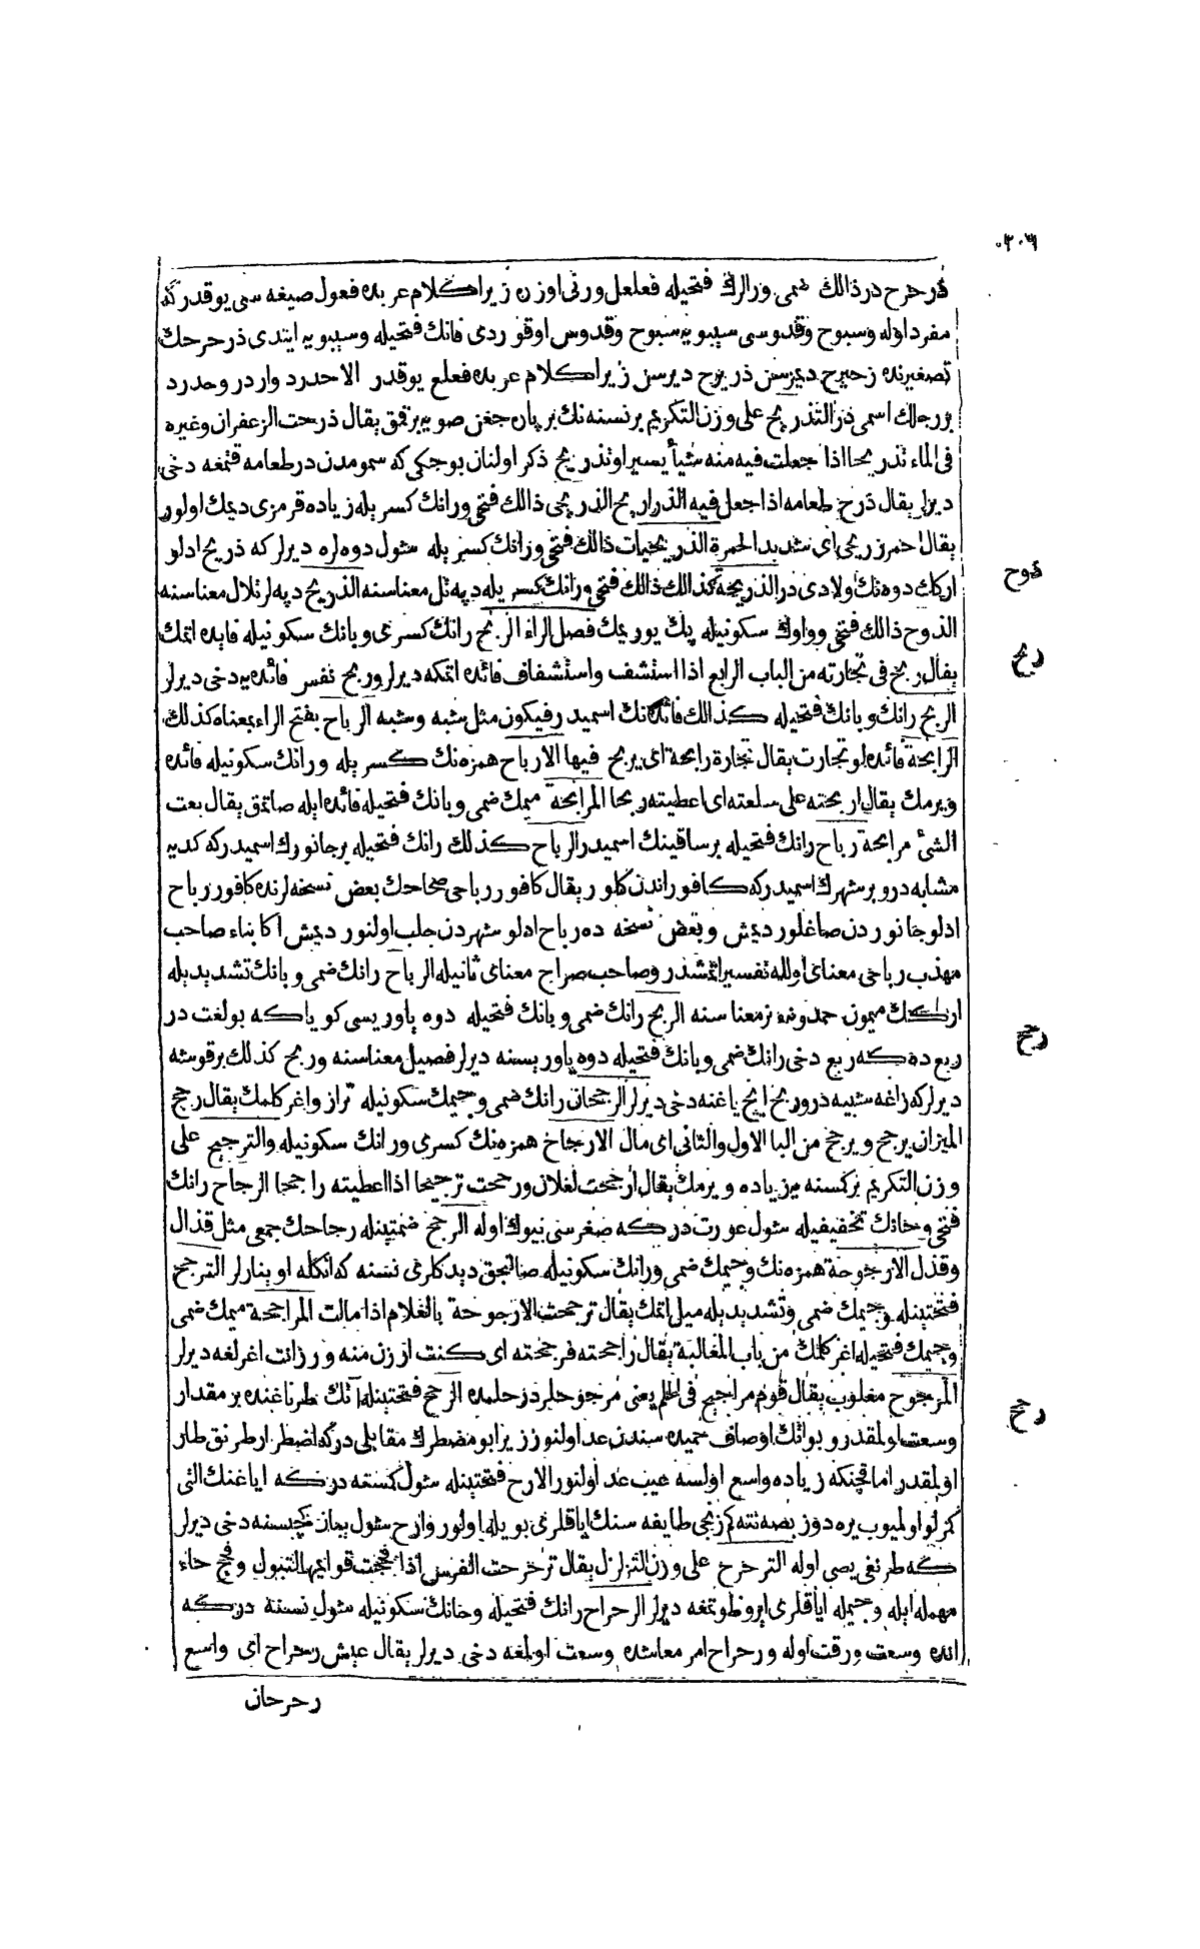 ٣٠٣
ذرحرح در ذالك ضمى ورالرك فتحيله فعلعل وزنى اوزره زيرا كلام عربده فعول صيغه سى يوقدر كه
مفرد اوله وسبوح وقدوسى سيبويه سبوح وقدوس اوقوردى فانك فتحيله وسيبويه ايتدى ذرحرحك
تصغيرنده زحيرح ديمزسن ذريرح ديرسن زيرا كلام عربده فعلع يوقدر الا حدرد واردر وحدرد
بر رجلك اسمى در التذريح على وزن التكريم بر نسنه نك بر پاره جغن صويه براقمق يقال ذرحت الزعفران وغيره
فى الماء تذريحا اذا جعلت فيه منه شيأ يسيرا وتذريح ذكر اولنان بوجكى كه سمومدندر طعامه قتمغه دخى
ديرلر يقال ذرح طعامه اذا جعل فيه الذراريح الذريحى ذالك فتحى ورانك كسريله زياده قرمزى ديمك اولور
يقال احمر ذريحى اى شديد الحمرة الذريحيات ذالك فتحى ورانك كسريله شول دوه لره ديرلر كه ذريح ادلو
اركك دوه نك ولادى در الذريحة كذلك ذالك فتحى ورانك كسريله دپه تل معناسنه الذريح دپه لر تلال معناسنه
ذوح
الذوح ذالك فتحى وواوك سكونيله پك يوريمك فصل الراء الربح رانك كسرى وبانك سكونيله فايده اتمك
ربح
يقال ربح فى تجارته من الباب الرابع اذا استشف واستشفاف فائده اتمكه ديرلر وربح نفس فائده يه دخى ديرلر
الربح رانك وبانك فتحيله كذلك فائده نك اسميدر فيكون مثل شبه وشبه الرباح بفتح الراء بمعناه كذلك
الرابحة فائده لو تجارت يقال تجارة رابحة اى يربح فيها الارباح همزه نك كسريله ورانك سكونيله فائده
ويرمك يقال اربحته على سلعته اى اعطيته ربحا المرابحة ميمك ضمى وبانك فتحيله فائده ايله صاتمق يقال بعت
الشئ مرابحة رباح رانك فتحيله بر ساقينك اسميدر الرباح كذلك رانك فتحيله بر جانورك اسميدر كه كديه
مشابه در وبر شهرك اسميدر كه كافور اندن كلور يقال كافور رباحى صحاحك بعض نسخه لرنده كافور رباح
ادلو جانوردن صاغلور ديمش وبعض نسخه ده رباح ادلو شهردن جلب اولنور ديمش اكا بناء صاحب
مهذب رباحى معناى اولله تفسير اتمشدر وصاحب صراح معناى ثانيله الرباح رانك ضمى وبانك تشديديله
اركك ميمون حمدونه نر معناسنه الربح رانك ضمى وبانك فتحيله دوه ياوريسى كويا كه بو لغت در
ربع ده كه ربع دخى رانك ضمى وبانك فتحيله دوه ياوريسنه ديرلر فصيل معناسنه وربح كذلك بر قوشه
رجح
ديرلر كه زاغه شبيه در وربح ايچ ياغنه دخى ديرلر الرجحان رانك ضمى وجيمك سكونيله ترازو اغر كلمك يقال رجح
الميزان يرجح ويرجح من البا الاول والثانى اى مال الارجاح همزه نك كسرى ورانك سكونيله والترجيح على
وزن التكريم بر كسنه يه زياده ويرمك يقال ارجحت لفلان ورجحت ترجيحا اذا اعطيته راجحا الرجاح رانك
فتحى وحانك تخفيفيله شول عورت در كه صغرسى بيوك اوله الرجح ضمتينله رجاحك جمعى مثل قذال
وقذل الارجوحة همزه نك وجيمك ضمى ورانك سكونيله صالنجق ديدكلرى نسنه كه انكله اوينارلر الترجح
فتحتينله وجيمك ضمى وتشديديله ميل اتمك يقال ترجحت الارجوحة بالغلام اذا مالت المراجحة ميمك ضمى
وجيمك فتحيله اغر كلمك من باب المغالبة يقال راجحته فرجحته اى كنت ارزن منه ورزانت اغرلغه ديرلر
رحح
المرجوح مغلوب يقال قوم مراجيح فى الحلم يعنى مرجوحلردر حلمده الرحح فتحتينله آتك طرناغنده بر مقدار
وسعت اولمقدر وبو اتك اوصاف حميده سندن عد اولنور زيرا بو مضطرك مقابلى در كه اضطرار طرنق طار
اولمقدر اما قچنكه زياده واسع اولسه عيب عد اولنور الارح فتحتينله شول كمسته در كه اياغنك التى
كرلو اولميوب يره دوز بصه نته كم زنجى طايفه سنك اياقلرى بويله اولور وارح شول يبان كچيسنه دخى ديرلر
كه طرنغى يصى اوله الترحرح على وزن التزلزل يقال ترحرحت الفرس اذا فججت قوايمها لتبول وفجج حاء
مهمله ايله وجيمله اياقلرى ايرو طوتمغه ديرلر الرحراح رانك فتحيله وحانك سكونيله شول نسنه در كه
انده وسعت ورقت اوله ورحراح امر معاشده وسعت اولمغه دخى ديرلر يقال عيش رحراح اى واسع
رحرحان